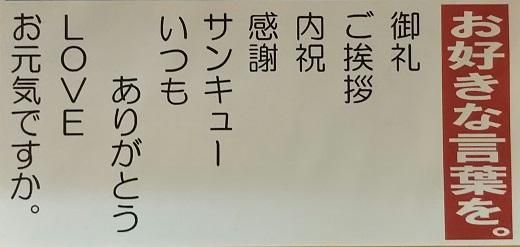 お好きな言葉を。
御礼
ご挨拶
内祝
感謝
サンキュー
いつも
ありがとう
LOVE
お元気ですか。